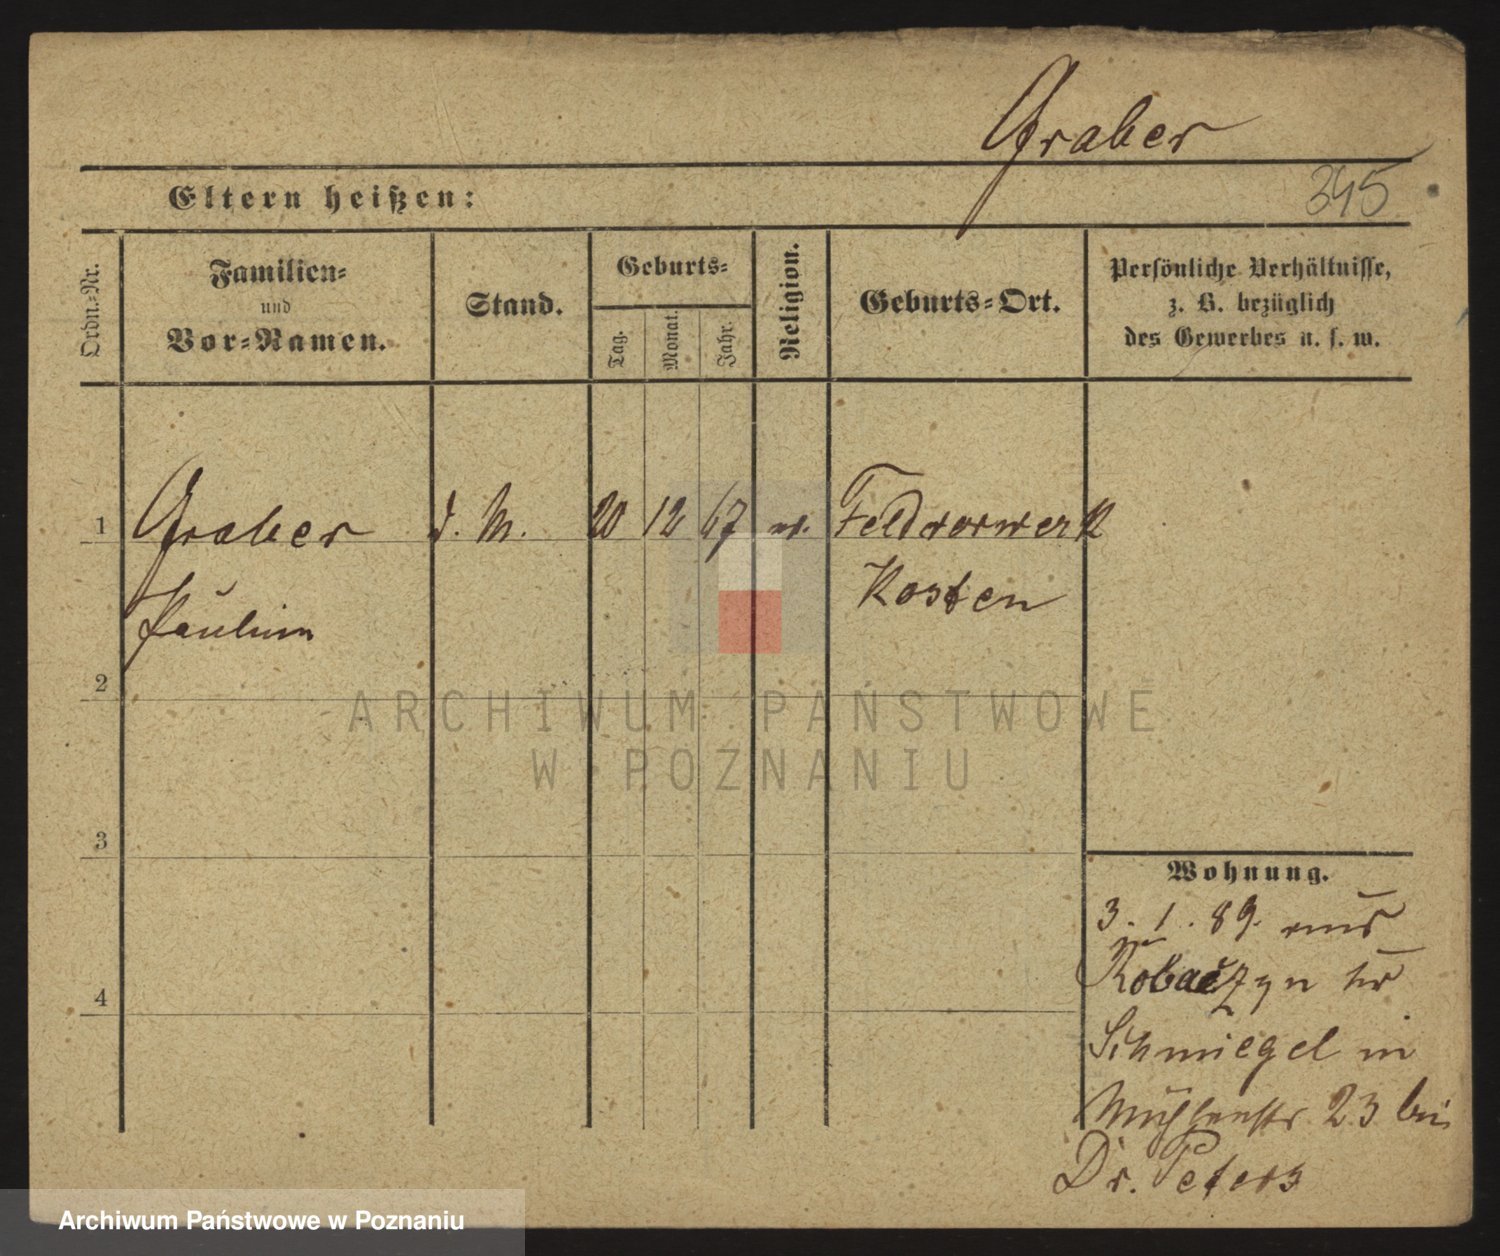 Graber
345
Eltern heißen:
Ordn.-Nr.
Familien-
und
Vor-Namen.
Stand.
Geburts-
Tag.
Monat.
Jahr.
Religion.
Geburts-Ort.
Persönliche Verhältnisse,
z. B. bezüglich
des Gewerbes u. s. w.
1 Graber d. M. 20 12 67 ev. Feldvorwerk
Paulin Kosten
2
3
4
Wohnung.
3. 1. 89. aus
Robaczyn Kr
Schmiegel in
Mühlenstr 23 bei
Dr. Peters
ARCHIWUM PAŃSTWOWE
W POZNANIU
Archiwum Państwowe w Poznaniu